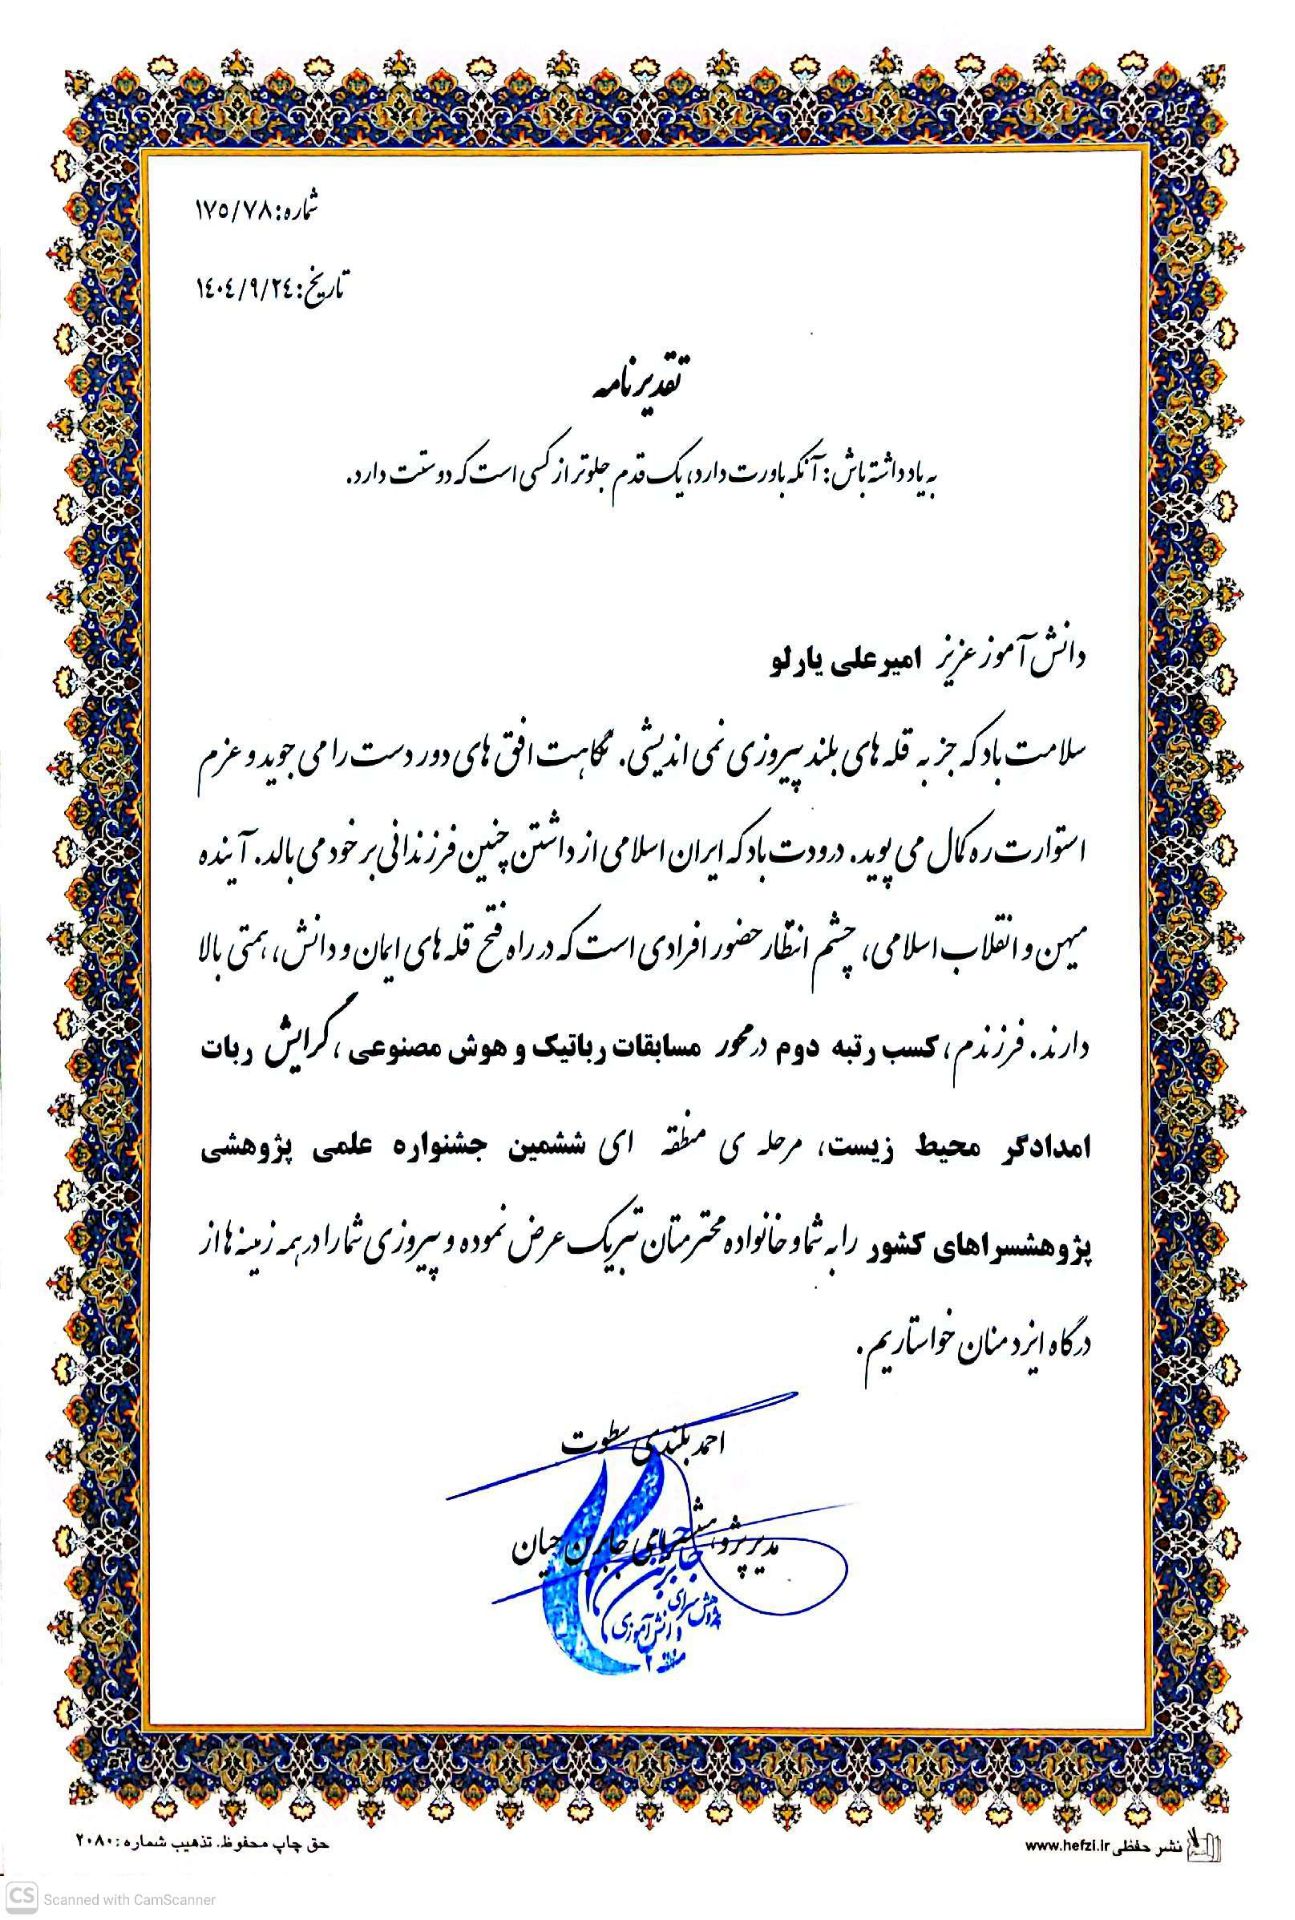 شماره: ۱۷۵/۷۸
تاریخ: ۱٤۰٤/۹/۲٤
تقدیرنامه
به یاد داشته باش: آنکه باورت دارد، یک قدم جلوتر از کسی است که دوستت دارد.
دانش آموز عزیز امیرعلی یارلو
سلامت باد که جز به قله های بلند پیروزی نمی اندیشی. نگاهت افق های دور دست را می جوید و عزم
استوارت ره کمال می پوید. درودت باد که ایران اسلامی از داشتن چنین فرزندانی بر خود می بالد. آینده
میهن و انقلاب اسلامی، چشم انتظار حضور افرادی است که در راه فتح قله های ایمان و دانش، همتی بالا
دارند. فرزندم، کسب رتبه دوم در محور مسابقات رباتیک و هوش مصنوعی، گرایش ربات
امدادگر محیط زیست، مرحله ی منطقه ای ششمین جشنواره علمی پژوهشی
پژوهشسراهای کشور را به شما و خانواده محترمتان تبریک عرض نموده و پیروزی شما را در همه زمینه ها از
درگاه ایزد منان خواستاریم.
احمد بلندی سطوت
مدیر پژوهشسرای جابربن حیان
جابربن حیان
پژوهش سرای
دانش آموزی
منطقه ۲
حق چاپ محفوظ. تذهیب شماره: ۲۰۸۰
نشر حفظی www.hefzi.ir
CS Scanned with CamScanner